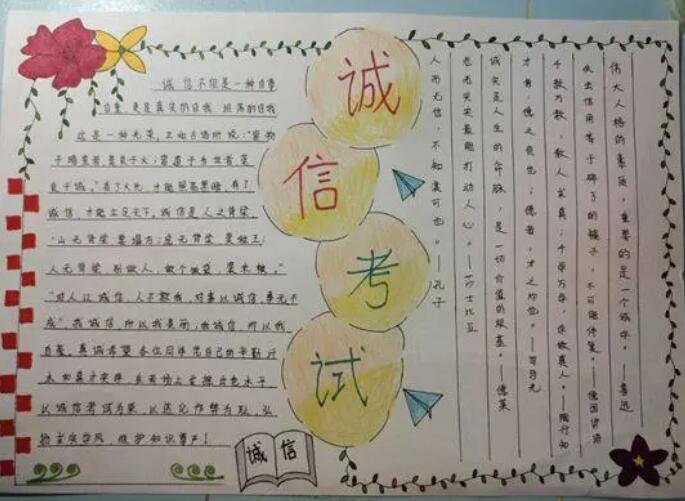 诚
信
考
试
诚信不但是一种自尊
自重,更是真实的自我,坦荡的自我
这是一种光荣,正如古语所说:"宝物
良于诚。"有了火光,才能照亮黑暗,有了
诚信,才能立足天下,诚信是人之脊梁,
"山无脊梁要塌方;虎无脊梁变
人无脊梁,别做人,做个
"对人以诚信,人不欺我,对事以诚信,事无不
成",我诚信,所以我美丽;我诚信,所以我
自豪。真诚希望各位同学凭自己的辛勤汗
水和真才实学,在考场上发挥出色水平
以诚信考试为荣,以违纪作弊为耻,弘
扬求实学风,维护知识尊严!
诚信
伟大人格的素质,重要的是一个诚字。——鲁迅
失去信用等于碎了的镜子,不可能修复。——德国谚语
千教万教,教人求真;千学万学,学做真人。——陶行知
才者,德之资也;德者,才之帅也。——司马光
诚实是人生的命脉,是一切价值的根基。——德莱
老老实实最能打动人心。——莎士比亚
人而无信,不知其可也。——孔子